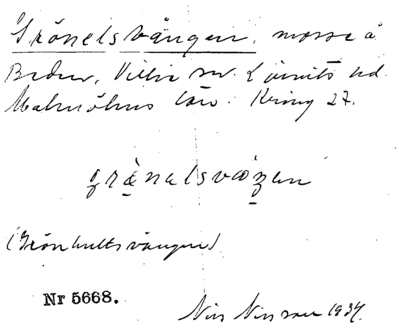 Grönelsvången, mosse å
Bedur, Villie sn. Ljunits hd.
Malmöhus län. Kring 27.
grànalsvæŋen
(Grönhultsvången)
Nr 5668.
Nils Nilsson 1934.